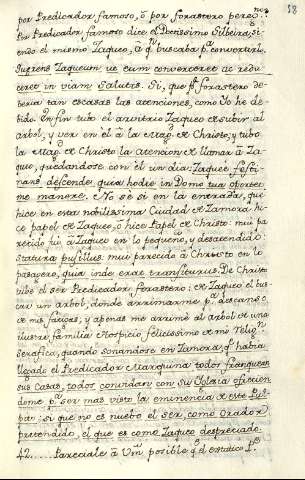 por Predicador famoso, ô por forastero
Por Predicador famoso dice el Doctissimo Silbeira, si-
endo el mismo Zaqueo, à qⁿ buscaba pᵃ convertirlo.
Zaqueum ut eum converteret ac redu
ceret in viam Salutis. Si, que pʳ forastero de-
beria tan escasas las atenciones, como Yo he de-
bido. En fin tubo el arvitrio Zaqueo de subir al
arbol, y ver en él à la Magᵈ de Christo, y tubo
la Magᵈ de Christo la atencion de llamar à Za
queo, quedandose con él un dia: Zaquee festi
nans descende, quia hodie in Domo tua oportet
me manere. No sè si en la entrada, que
hice en esta nobilissima Ciudad de Zamora hi-
ce papel de Zaqueo, ò hice Papel de Christo: mui pa
recido fui à Zaqueo en lo pequeño, y desatendido:
Statura pusillus: mui parecido à Christo en lo
pasagero, quia inde erat transiturus. De Christo
tube el ser Predicador forastero: de Zaqueo el bus
car un arbol, donde arrimarme pᵃ descanso
de mis fatigas, y apenas me arrimè al arbol de una
ilustre familia Hospicio felicissimo de mi Religⁿ
Serafica, quando sonandose en Zamora, qᵉ habia
llegado el Predicador Marquina todos franquean
sus Casas, todos convidan con su Iglesia ofrecien
dome pᵃ ser mas visto la eminencia de este Pul-
pito: si que no es nuebo el ser, como Orador
pretendido, el que es como Zaqueo despreciado.
42. Pareciale à Vm posible qᵉ el estatico Pᵉ